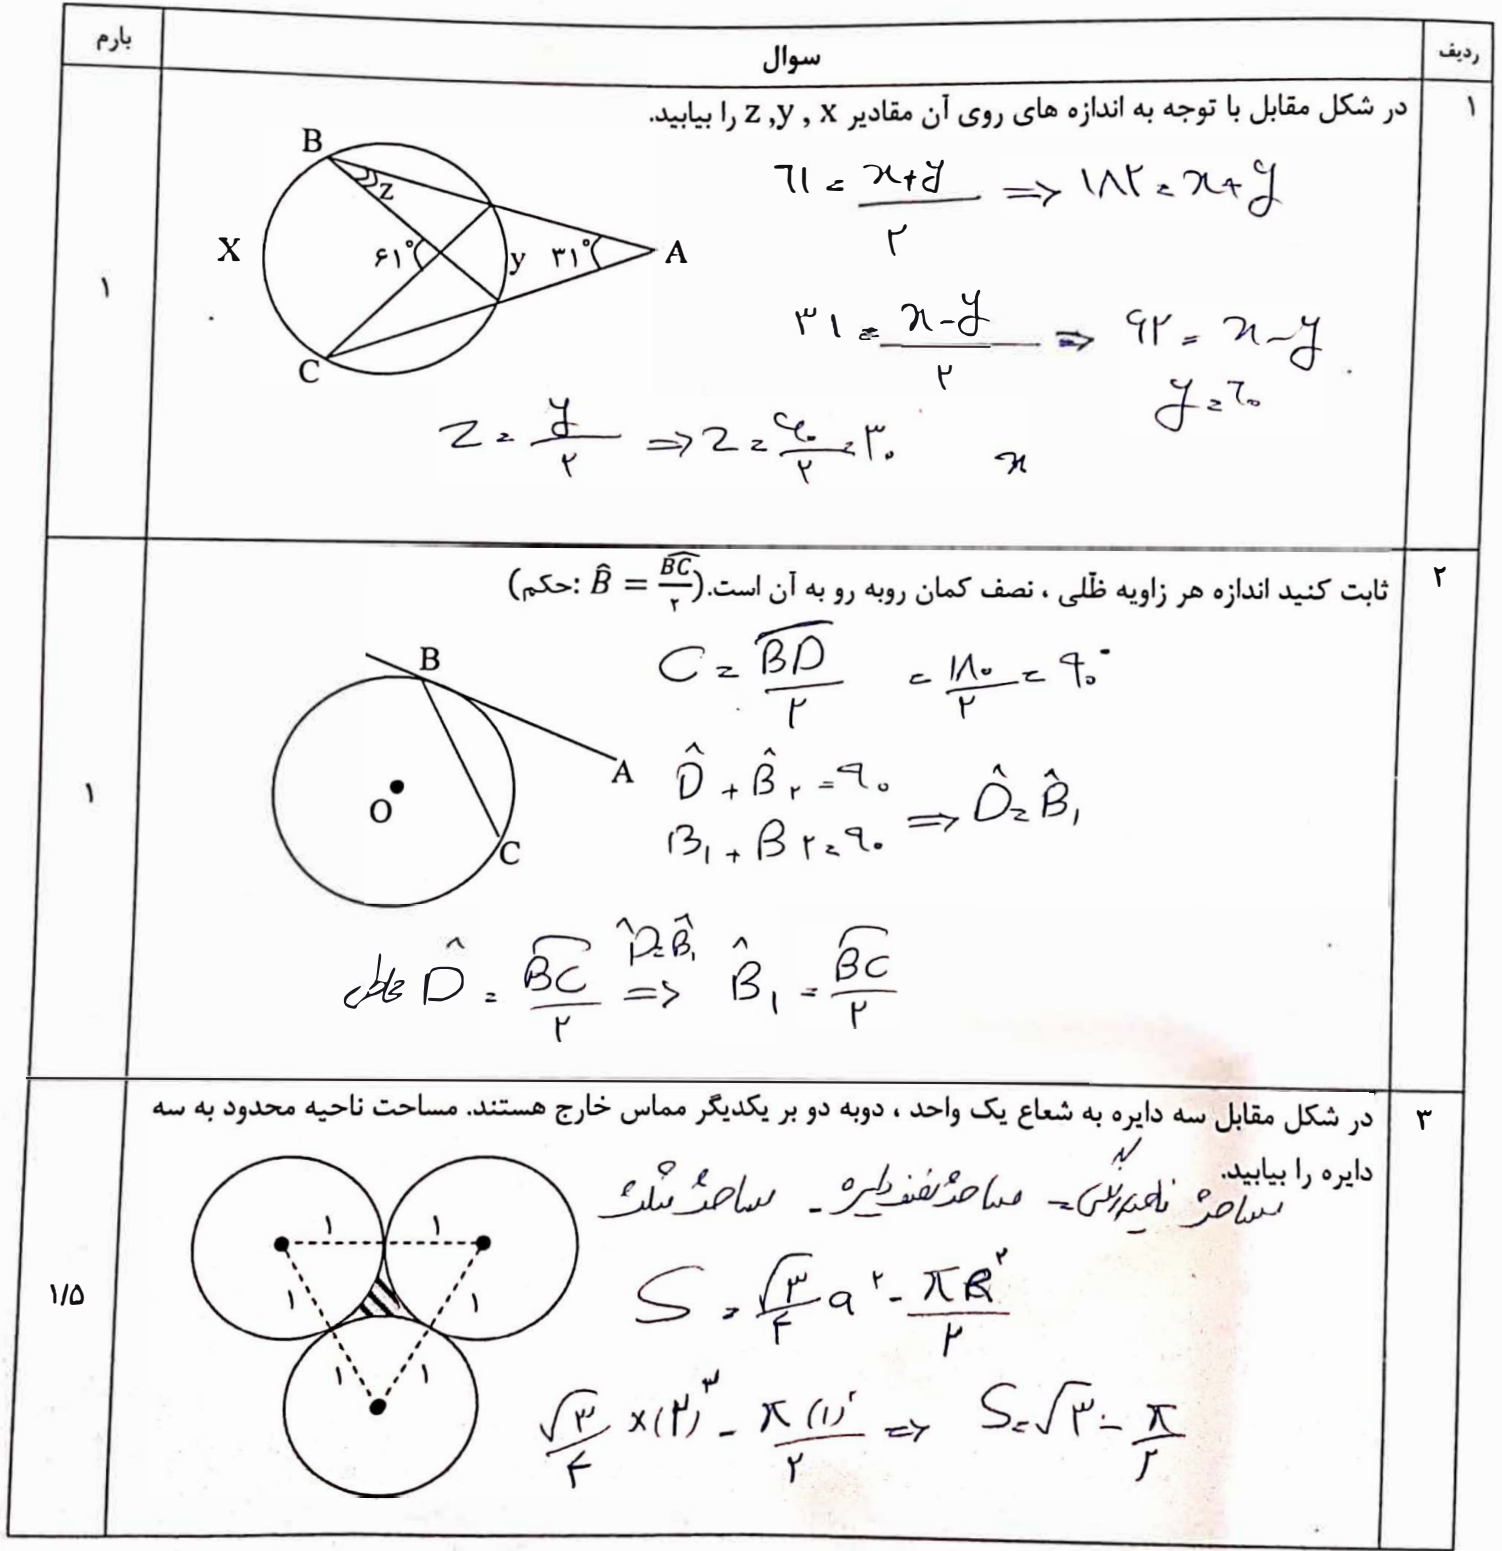 ردیف
سوال
بارم
۱
در شکل مقابل با توجه به اندازه های روی آن مقادیر z ,y , x را بیابید.
۱
B
z
X
۶۱°
y
۳۱°
A
C
٦١ = x+y / ۲ => ۱۸۲ = x+y
۳۱ = x-y / ۲ => ۶۲ = x-y
y = ٦۰
z = y / ۲ => z = ۶۰ / ۲ = ۳۰
x
۲
ثابت کنید اندازه هر زاویه ظلّی ، نصف کمان روبه رو به آن است.(حکم: B̂ = BC / ۲)
۱
B
A
O
C
C = BD / ۲ = ۱۸۰ / ۲ = ۹۰°
D̂ + B̂۲ = ۹۰
B۱ + B۲ = ۹۰
=> D̂ = B̂۱
محاطی D̂ = BC / ۲ => D̂=B̂۱ B̂۱ = BC / ۲
۳
در شکل مقابل سه دایره به شعاع یک واحد ، دوبه دو بر یکدیگر مماس خارج هستند. مساحت ناحیه محدود به سه
دایره را بیابید.
۱/۵
۱ ۱
۱ ۱
۱ ۱
مساحت ناحیه = مساحت نصف دایره - مساحت مثلث
S = √۳ / ۴ a² - πR² / ۲
√۳ / ۴ ×(۲)³ - π(۱)² / ۲ => S = √۳ - π / ۲